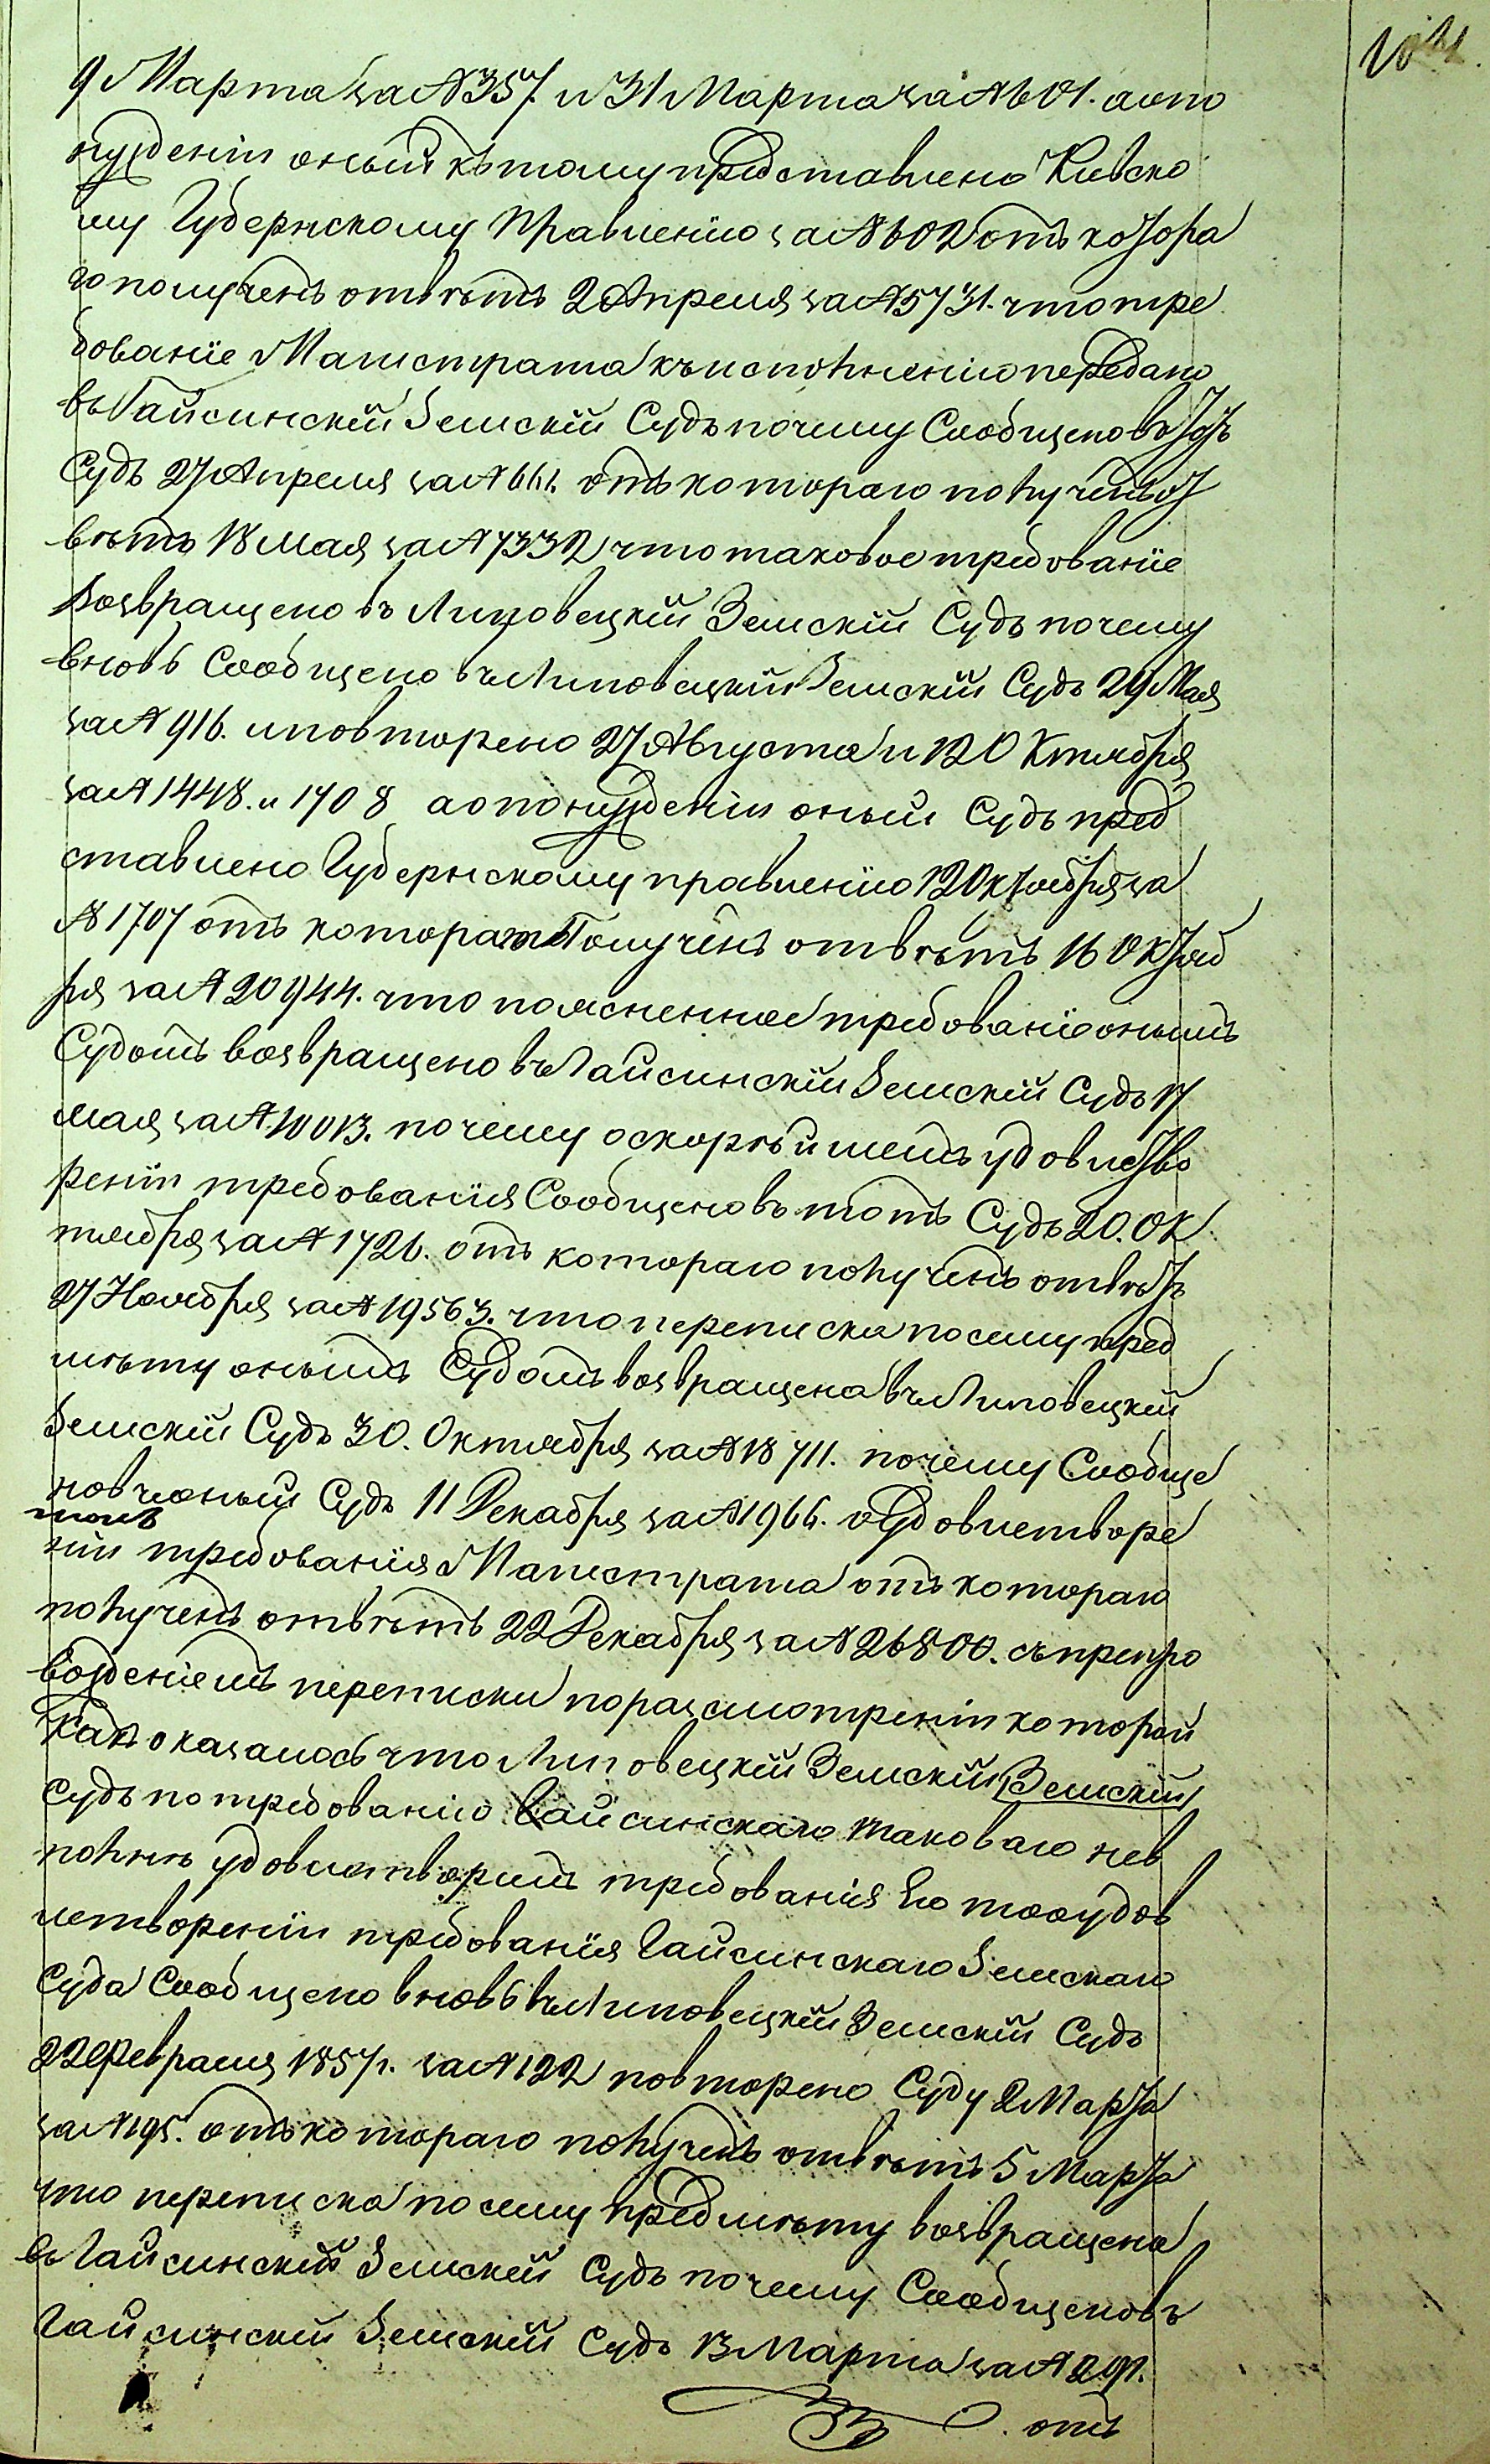 9 Марта за №357. и 31 Марта за №601. а о по
нужденіи оный къ тому представлено Киевско
му Губернскому Правленїю за №602 отъ котора
го полученъ отвѣтъ 2 Апреля за №5731. что тре
бованїе Магистрата къ исполненїю передано
въ Гайсинскїй Земскїй Судъ почему Сообщено въ тотъ
Судъ 27 Апреля за №661. отъ котораго полученъ от
вѣтъ 18 мая за №7332 что таковое требованїе
Возвращено въ Липовецкїй Земскїй Судъ почему
вновь Сообщено въ Липовецкїй Земскїй Судъ 29 Мая
за №916. и повторено 27 Августа и 12 Октября
за №1448. и 1708 а о понужденїи оный Судъ пред
ставлено Губернскому правленїю 12 Октября за
№1707 отъ котораго Полученъ отвѣтъ 16 Октяб
ря за №20944. что поясненное требованїе онымъ
Судомъ возвращено въ Гайсинскїй Земскїй Судъ 17
мая за №.10013. почему о скорѣйшемъ удовлетво
ренїи требованїя Сообщено въ тотъ Судъ 20. Ок
тября за №1726. отъ котораго полученъ отвѣтъ
27 Ноября за №19563. что переписка по сему пред
мѣту онымъ Судомъ возвращена въ Липовецкїй
Земскїй Судъ 30. Октября за №18711. почему Сообще
но въ оный Судъ 11 Декабря за №1966. о Удовлетворе
нїи требованїя Магистрата отъ котораго
полученъ отвѣтъ 22 Декабря за №26800. съ препро
вожденїемъ переписки по разсмотренїи которой
оказалось что Липовецкїй Земскїй Земскїй
Судъ по требованїю Гайсинскаго таковаго не в
полнѣ удовлетворилъ требованїя Его то о удов
летворенїи требованїя Гайсинскаго Земскаго
Суда Сообщено вновь въ Липовецкїй Земскїй Судъ
22 Февраля 1857 г. за №122 повторено Суду 2 Марта
за №195. отъ котораго полученъ отвѣтъ 5 Марта
что переписка по сему предмѣту возвращена
въ Гайсинскїй Земскїй Судъ почему Сообщено въ
Гайсинскїй Земскїй Судъ 13 Марта за №291.
отъ